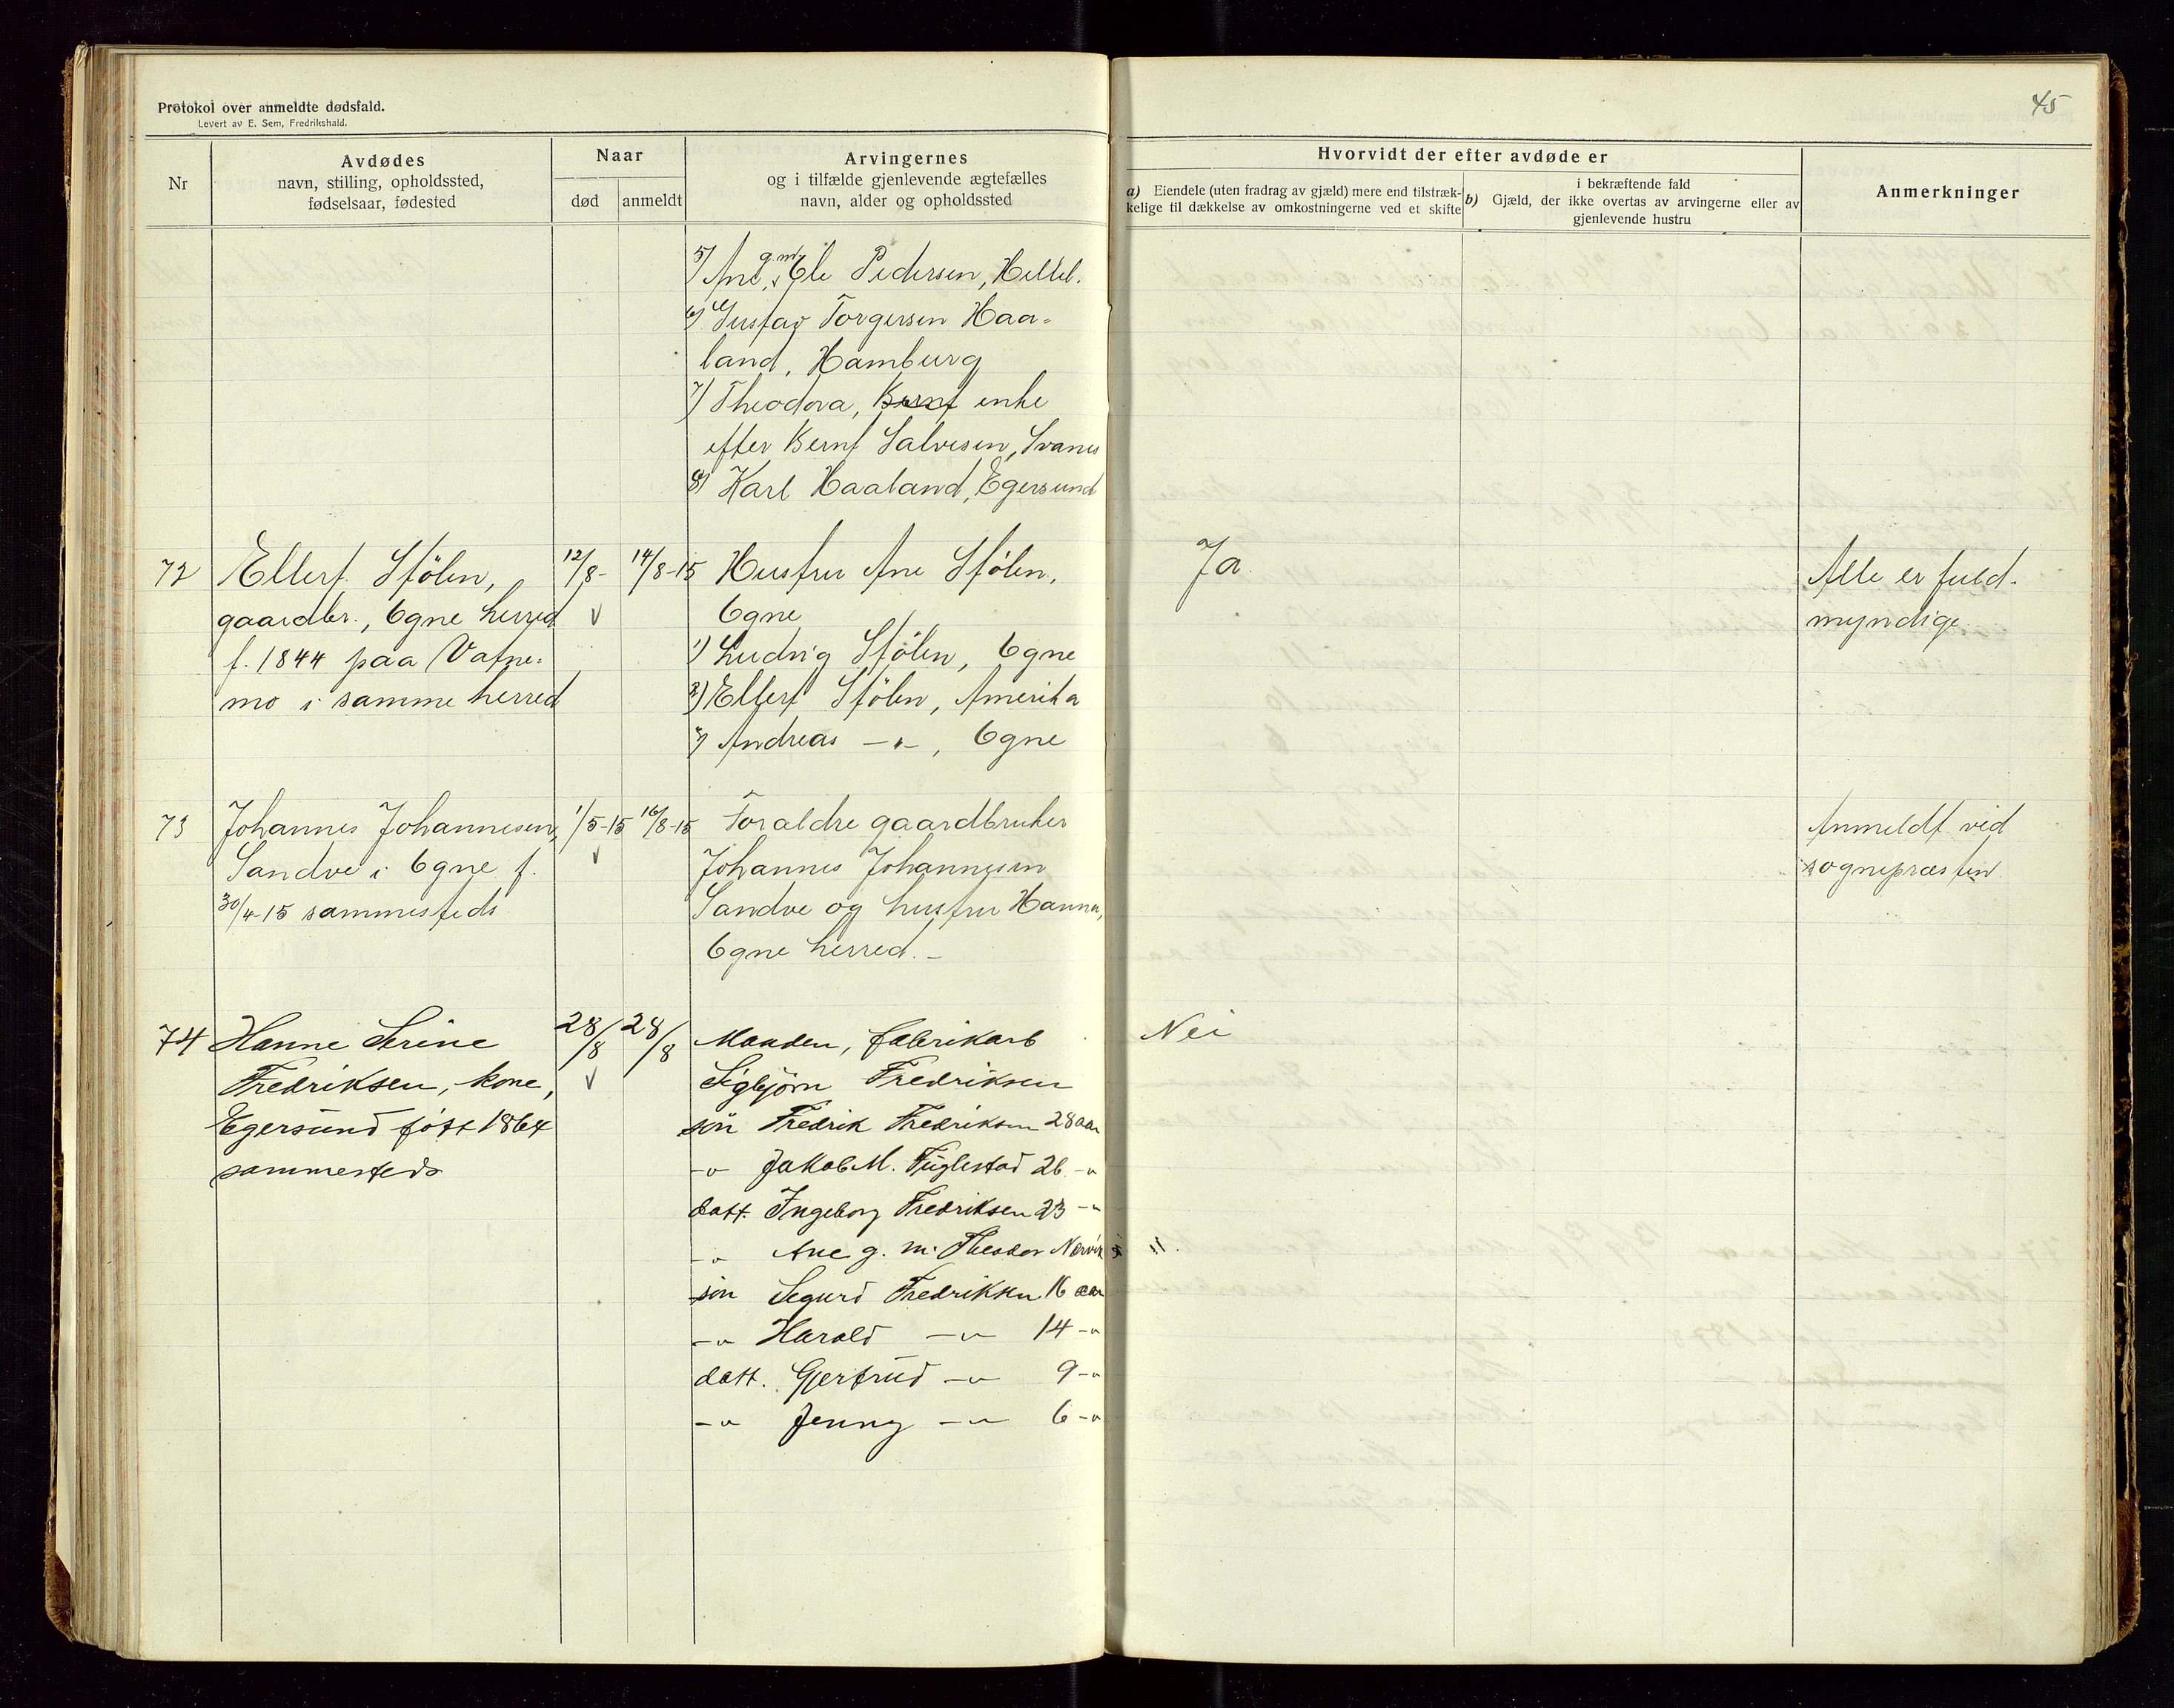 Protokol over anmeldte dødsfald.
Levert av E. Sem, Fredrikshald.
45
Nr
Avdødes
navn, stilling, opholdssted,
fødselsaar, fødested
Naar
død
anmeldt
Arvingernes
og i tilfælde gjenlevende ægtefælles
navn, alder og opholdssted
Hvorvidt der efter avdøde er
a) Eiendele (uten fradrag av gjæld) mere end tilstræk-
kelige til dækkelse av omkostningerne ved et skifte
i bekræftende fald
b) Gjæld, der ikke overtas av arvingerne eller av
gjenlevende hustru
Anmerkninger
5) Ane, g.m. Ole Pedersen, Hellel.
6) Gustav Torgersen Haa-
land, Hamburg
7) Theodora, Bernt enke
efter Bernt Salvesen, Svanes
8) Karl Haaland, Egersund
72 Ellert Stölen, 12/8- 14/8-15 Hustru Ane Stölen, Ja. Alle er fuld-
gaardbr., Ogne herred Ogne myndige.
f. 1844 paa Vatne- 1) Ludvig Stölen, Ogne
mo i samme herred 2) Ellert Stölen, Amerika
3) Andreas -"-, Ogne
73 Johannes Johannesen, 1/5-15 16/8-15 Foraldre gaardbruker Anmeldt ved
Sandve i Ogne f. Johannes Johannesen sognepræsten
30/4-15 sammesteds Sandve og hustru Hanna,
Ogne herred. -
74 Hanne Serine 28/8 28/8 Manden, fabrikarb Nei
Fredriksen, kone, Sigbjörn Fredriksen
Egersund født 1864 sön Fredrik Fredriksen 28 aar
sammesteds -"- Jakob M. Fuglestad 26 -"-
datt. Ingeborg Fredriksen 23 -"-
-"- Ane g. m. Theodor Narvik
sön Sigurd Fredriksen 16 aar
-"- Harald -"- 14 -"-
datt. Gjertrud -"- 9 -"-
-"- Jenny -"- 6 -"-